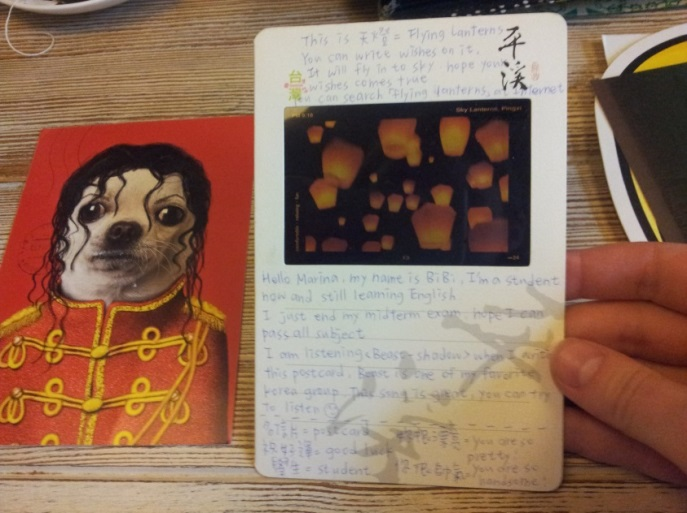 This is 天燈 = Flying Lanterns
You can write wishes on it.
It will fly in to sky. hope your
wishes comes true
You can search "Flying lanterns" on internet
平溪
台灣
Sky Lantern, Pingxi
Hello Marina, my name is BiBi, I'm a student
now and still learning English
I just end my midterm exam. hope I can
pass all subject
I am listening <Beast - shadow> when I write
this postcard, Beast is one of my favorite
Korea group. This song is great, you can try
to listen
明信片 = postcard
= good luck
學生 = student
= you are so
pretty!
= you are so
handsome!